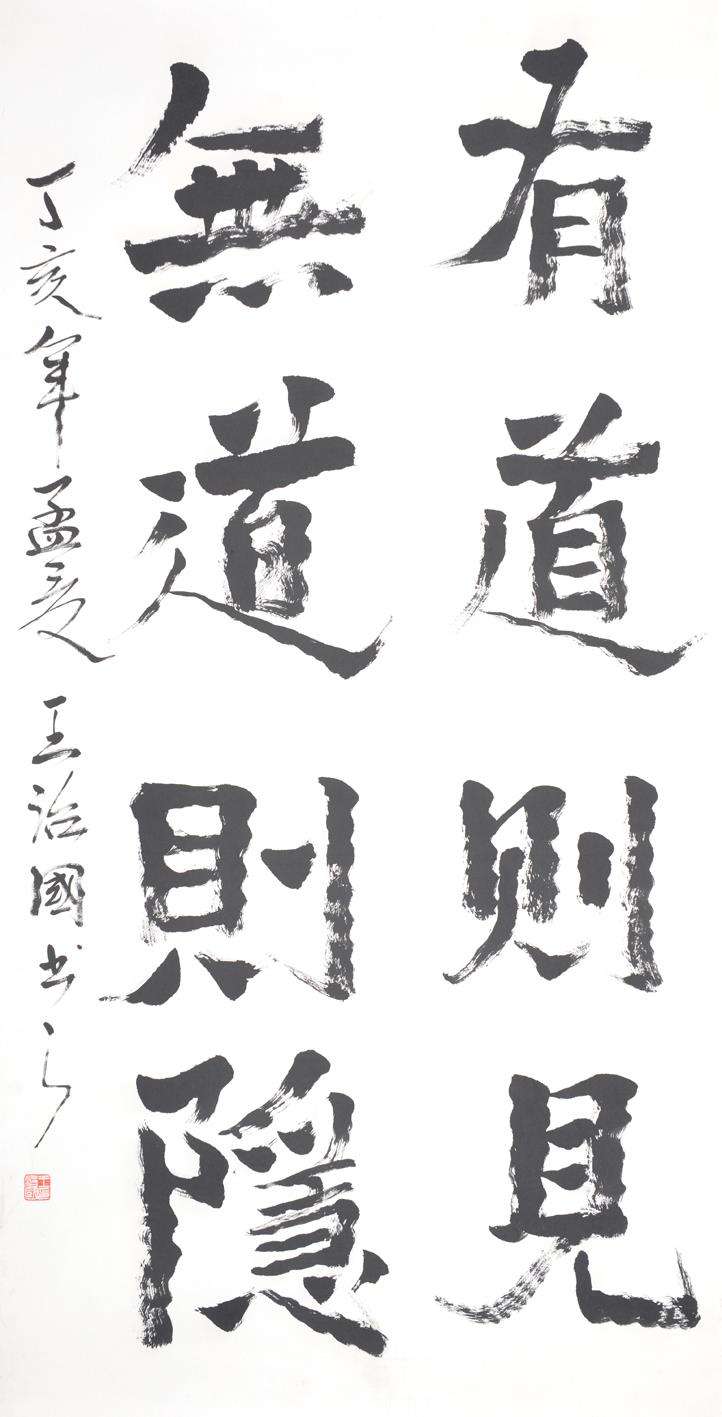 有道则見
無道則隱
丁亥年孟夏王治國书之